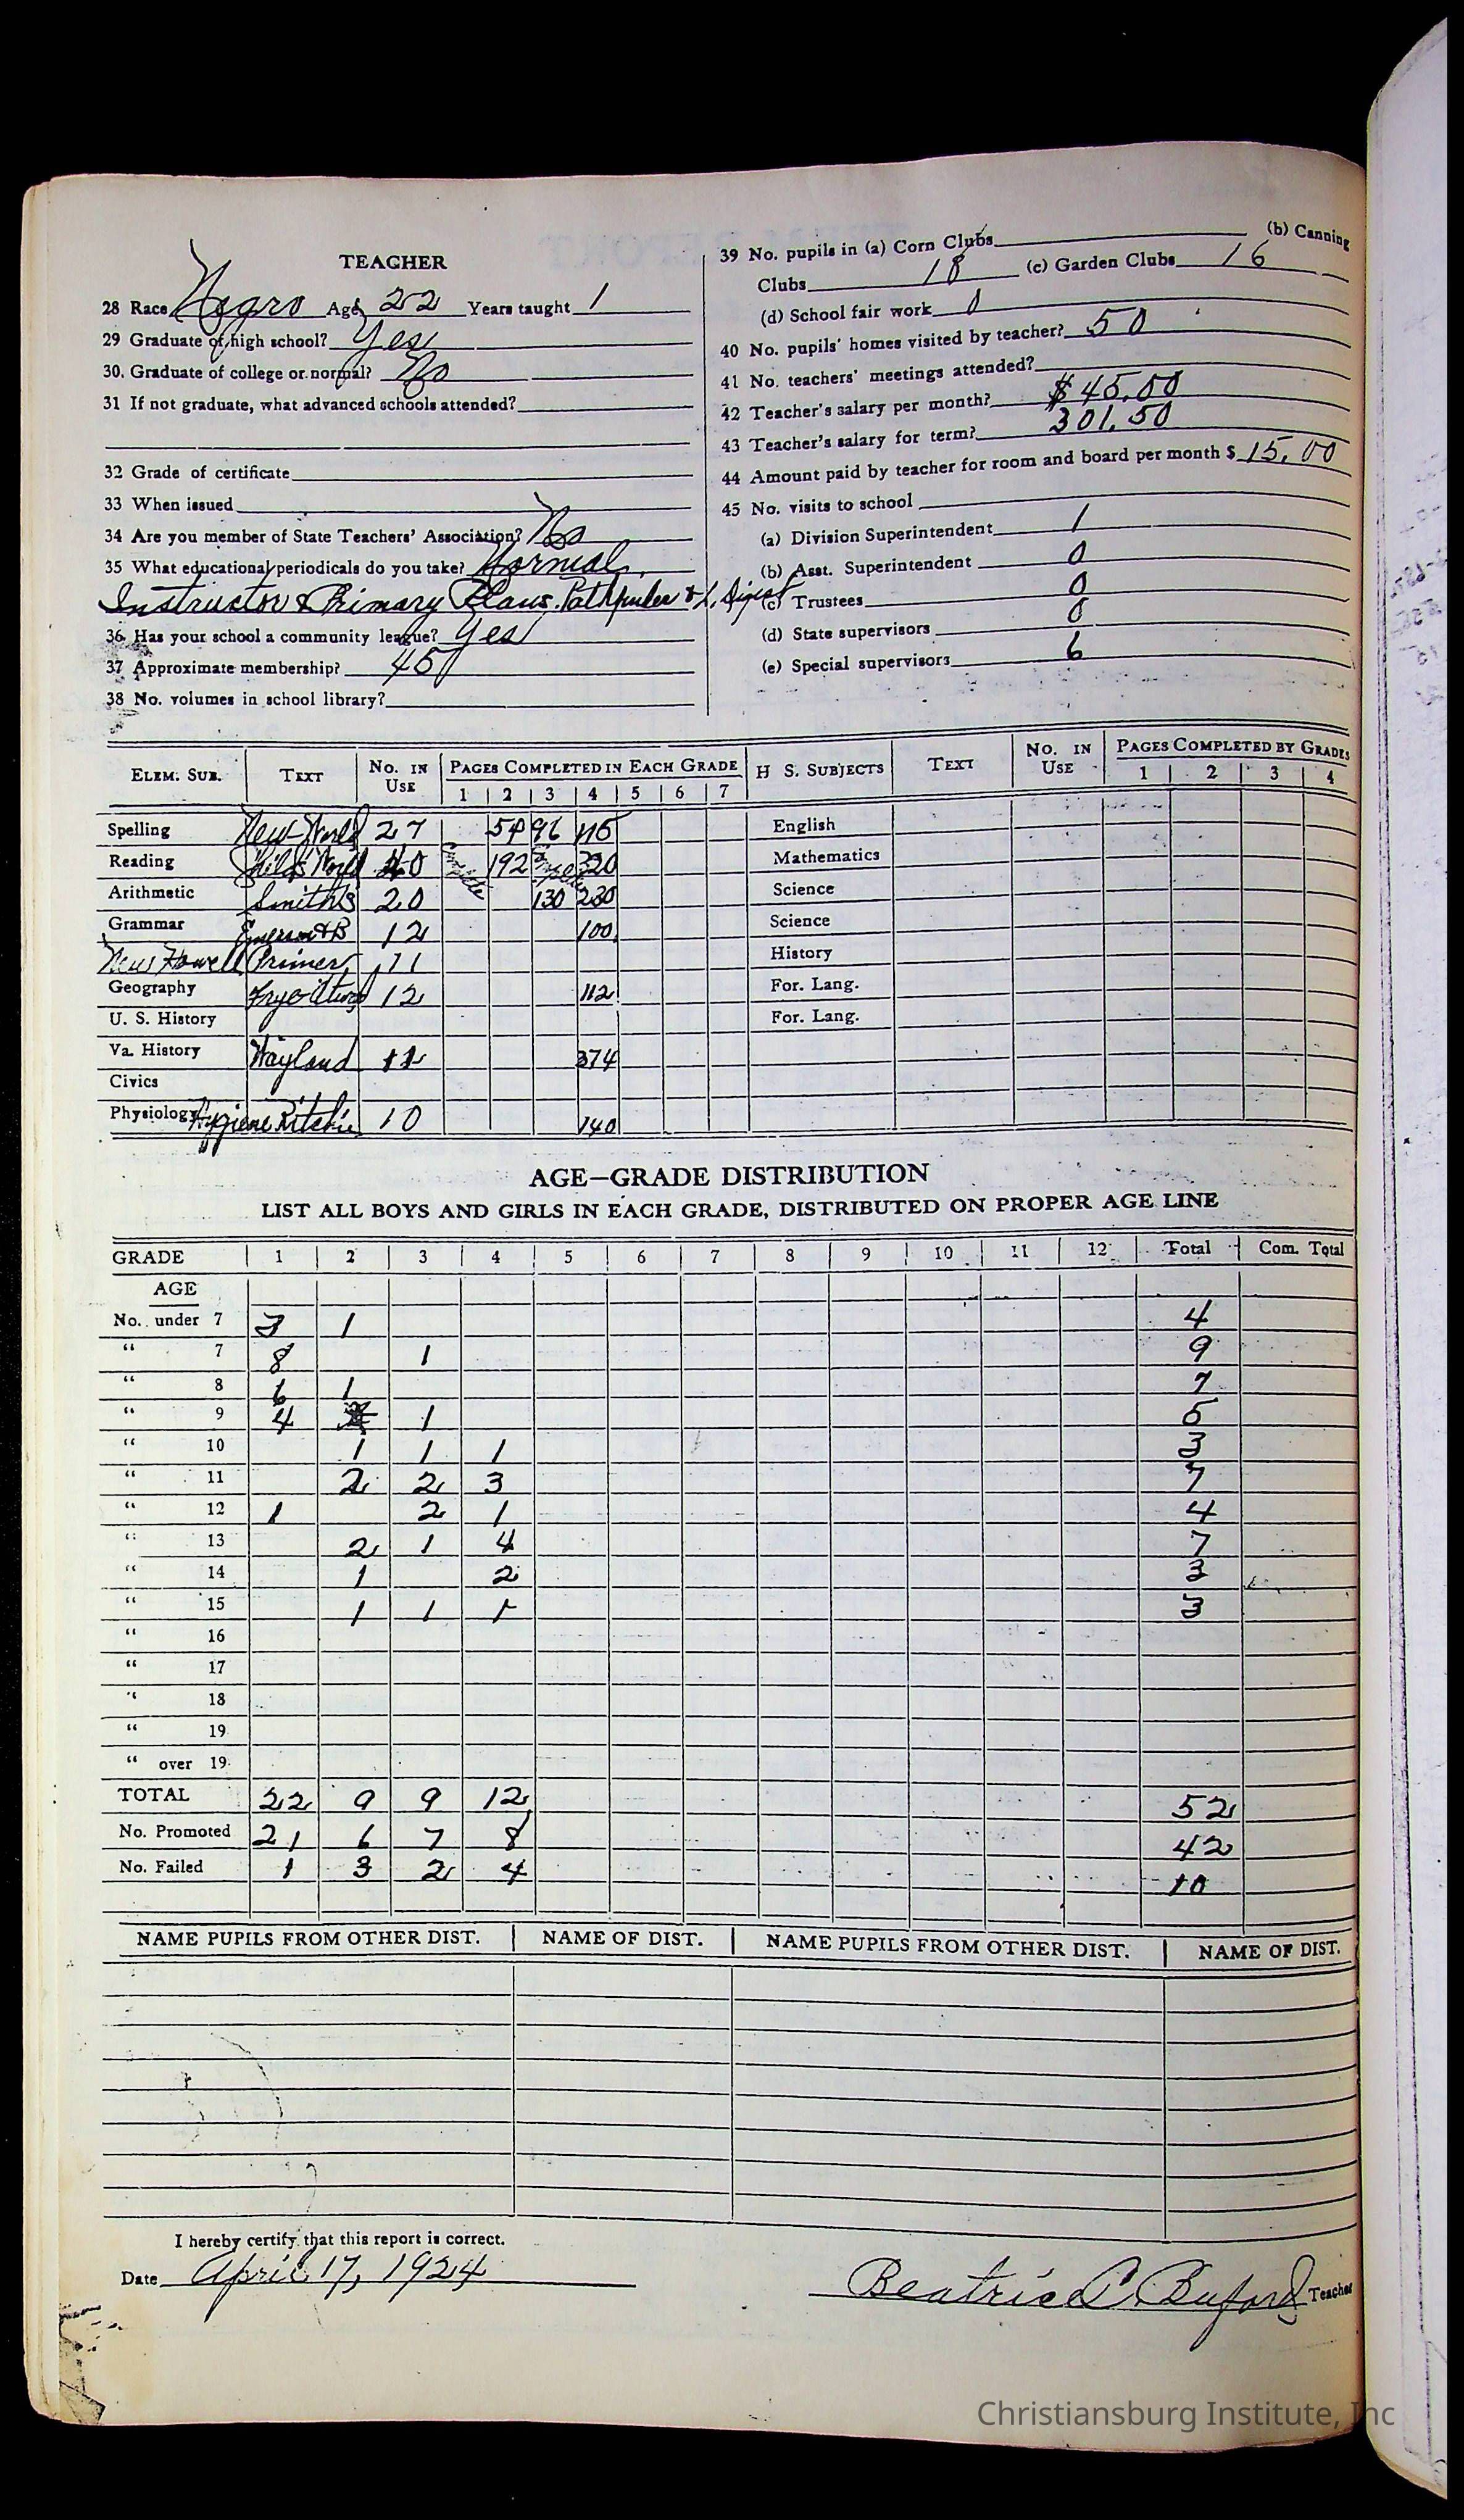 TEACHER
28 Race Negro Age 22 Years taught 1
29 Graduate of high school? Yes
30. Graduate of college or normal? No
31 If not graduate, what advanced schools attended?
32 Grade of certificate
33 When issued
34 Are you member of State Teachers' Association? No
35 What educational periodicals do you take? Normal
Instructor & Primary Plans. Pathfinder & L. Digest
36 Has your school a community league? Yes
37 Approximate membership? 45
38 No. volumes in school library?
39 No. pupils in (a) Corn Clubs (b) Canning
Clubs 18 (c) Garden Clubs 16
(d) School fair work 0
40 No. pupils' homes visited by teacher? 50
41 No. teachers' meetings attended?
42 Teacher's salary per month? $45.00
43 Teacher's salary for term? 301.50
44 Amount paid by teacher for room and board per month $ 15.00
45 No. visits to school
(a) Division Superintendent 1
(b) Asst. Superintendent 0
(c) Trustees 0
(d) State supervisors 0
(e) Special supervisors 6
ELEM. SUB. TEXT NO. IN USE PAGES COMPLETED IN EACH GRADE H S. SUBJECTS TEXT NO. IN USE PAGES COMPLETED BY GRADES
1 2 3 4 5 6 7 1 2 3 4
Spelling New World 27 54 96 115 English
Reading Child's World 40 192 320 Mathematics
Arithmetic Smith's 20 130 230 Science
Grammar Emerson & B 12 100 Science
New Howell Primer 11 History
Geography Frye Atwood 12 112 For. Lang.
U. S. History For. Lang.
Va. History Wayland 12 374
Civics
Physiology Hygiene Ritchie 10 140
AGE—GRADE DISTRIBUTION
LIST ALL BOYS AND GIRLS IN EACH GRADE, DISTRIBUTED ON PROPER AGE LINE
GRADE 1 2 3 4 5 6 7 8 9 10 11 12 Total Com. Total
AGE
No. under 7 3 1 4
" 7 8 1 9
" 8 6 1 7
" 9 4 1 5
" 10 1 1 1 3
" 11 2 2 3 7
" 12 1 2 1 4
" 13 2 1 4 7
" 14 1 2 3
" 15 1 1 1 3
" 16
" 17
" 18
" 19
" over 19
TOTAL 22 9 9 12 52
No. Promoted 21 6 7 8 42
No. Failed 1 3 2 4 10
NAME PUPILS FROM OTHER DIST. NAME OF DIST. NAME PUPILS FROM OTHER DIST. NAME OF DIST.
I hereby certify that this report is correct.
Date April 17, 1924
Beatrice C. Buford Teacher
Christiansburg Institute, Inc